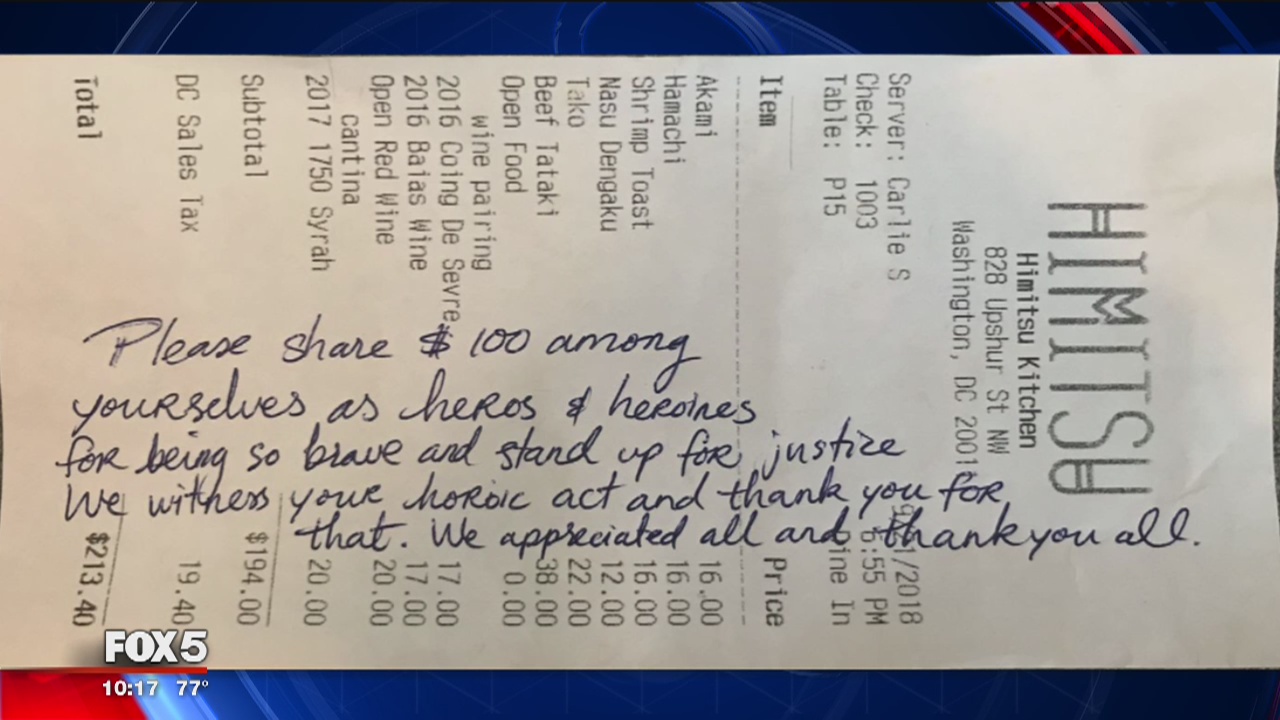 HIMITSU
Himitsu Kitchen
828 Upshur St NW
Washington, DC
Server: Carlie S
Check: 1003 6:55 PM
Table: P15 Dine In
Item Price
Akami 16.00
Hamachi 16.00
Shrimp Toast 16.00
Nasu Dengaku 12.00
Tako 22.00
Beef Tataki 38.00
Open Food 0.00
wine pairing
2016 Coing De Sevre 17.00
2016 Baias Wine 17.00
Open Red Wine 20.00
cantina
2017 1750 Syrah 20.00
Subtotal $194.00
DC Sales Tax 19.40
Total $213.40
Please share $100 among
yourselves as heros & heroines
for being so brave and stand up for justice
We witness your horoic act and thank you for
that. We appreciated all and thank you all.
FOX5
10:17 77°